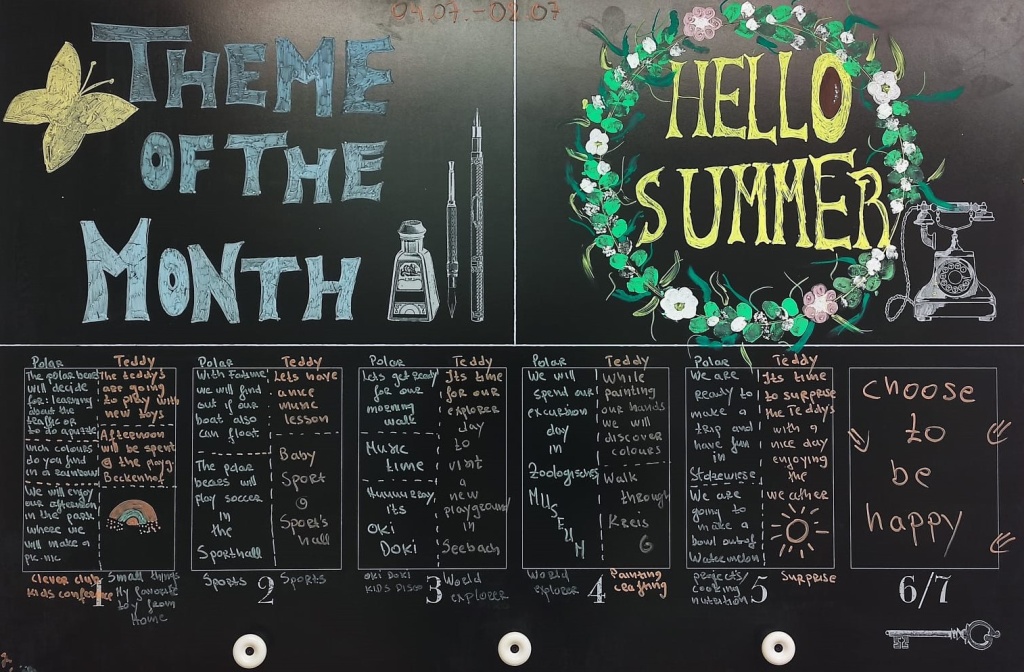 04.07.-08.07
THEME
OF THE
MONTH
HELLO
SUMMER
Polar
The polar bears
will decide
for: learning
about the
traffic or
to do a puzzle
wich colours
do you find
in a rainbow
We will enjoy
our afternoon
in the park
where we
will make a
pic-nic
Teddy
The teddy's
are going
to play with
new toys
Afternoon
will be spent
@ the playg.
Beckenhof
Clever club
kids conference
1
Small things
My favorite
toy from
Home
Polar
With Fatime
we will find
out if our
boat also
can float
The polar
bears will
play soccer
in
the
Sporthall
Teddy
Lets have
a nice
music
lesson
Baby
Sport
@
Sport's
hall
Sports
2
Sports
Polar
Lets get ready
for our
morning
walk
Music
time
its
Oki
Doki
Teddy
Its time
for our
explorer
day
to
visit
a
new
playground
in
Seebach
OKI DOKI
KID'S DISCO
3
World
explorer
Polar
We will
spend our
excursion
day
in
Zoologisches
MUSEUM
Teddy
While
painting
our hands
we will
discover
colours
Walk
through
Kreis
6
World
explorer
4
Painting
crafting
Polar
We are
ready to
make a
trip and
have fun
in
Stolzewiese
We are
going to
make a
bowl out of
Watermelon
Teddy
Its time
to surprise
the Teddys
with a
nice day
enjoying
the
weather
projects/
cooking
nutrition
5
Surprise
choose
to
be
happy
6/7